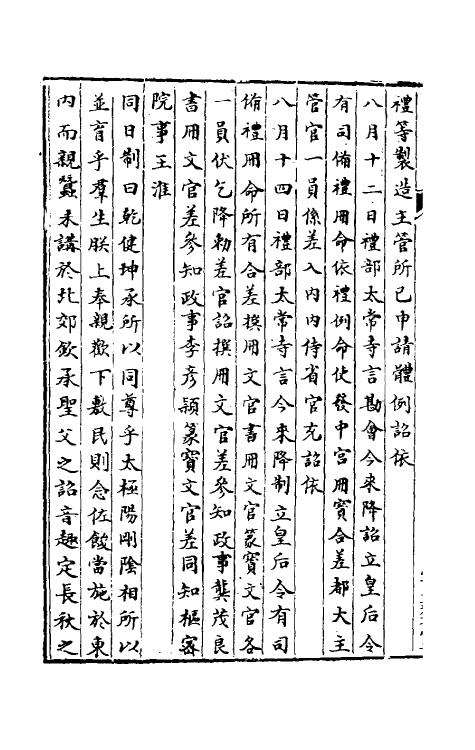 禮等製造主管所已申請體例詔依
八月十二日禮部太常寺言勘會今來降詔立皇后令
有司備禮冊命依禮例命使發中宮冊寶合差都大主
管官一員係差入內內侍省官充詔依
八月十四日禮部太常寺言今來降制立皇后令有司
備禮冊命所有合差撰冊文官書冊文官篆寶文官各
一員伏乞降勑差官詔撰冊文官差參知政事龔茂良
書冊文官差參知政事李彥頴篆寶文官差同知樞密
院事王淮
同日制曰乾健坤承所以同尊乎太極陽剛陰相所以
並育乎羣生朕上奉親歡下敷民則念佐餕當施於東
內而親蠶未講於北郊欽承聖父之詔音趣定長秋之